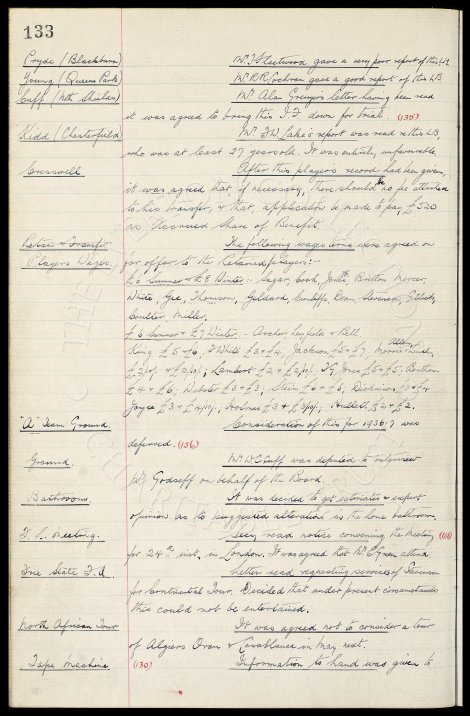 133
Pryde (Blackburn) Mr. J Fleetwood gave a very poor report of this L.H.
Young (Queens Park) Mr. R.R. Cochran gave a good report of this L.B.
Cuff (Nth Shields) Mr. Alan Grenyer's letter having been read
it was agreed to bring this I.F. down for trial. (135)
Kidd (Chesterfield) Mr. F.W. Lake's report was read re this L.B,
who was at least 27 years old. It was entirely unfavourable.
Cresswell After this players record had been given,
it was agreed that, if necessary, there should be no fee attached
to his transfer, & that, application be made to pay £520
as Accrued Share of Benefit.
Retain & Transfer The following wages terms were agreed on
Players Wages. for offer to the Retained players:-
£6 Summer & £8 Winter:- Sagar, Cook, Jones, Britton, Mercer,
White, Gee, Thomson, Geldard, Cunliffe, Dean, Stevenson, Gillick,
Coulter Miller.
£6 Summer & £7 Winter. - Archer, Leyfield & Bell.
King £5 & £6, J White £3 & £4, Jackson £5 & £7, Morris
Lambert £2 & £2/10/-. T.G Jones £5 & £5, Bentham
£4 & £6, Webster £3 & £3, Stein £6 & £6, Dickinson £3 & £4
Joyce £3 & £4/10/-, Holmes £3 & £3/10/-, Hullett £2 & £2.
"A" Team Ground. Consideration of this for 1936-7 was
deferred. (136)
Ground. Mr. W.C. Cuff was deputed to interview
Mr. Godseff on behalf of the Board.
Bathroom. It was decided to get estimates & expert
opinion as to suggested alteration in the home bathroom.
F.L. Meeting. Secy read notice concerning the Meeting (140)
for 24th inst. in London. It was agreed that Mr. Green attend
Free State F.A. Letter read, requesting services of Stevenson
for Continental Tour. Decided that under present circumstances
this could not be entertained.
North African Tour It was agreed not to consider a tour
of Algiers Oran & Casablanca in May next.
Tape Machine (130) Information to hand was given to